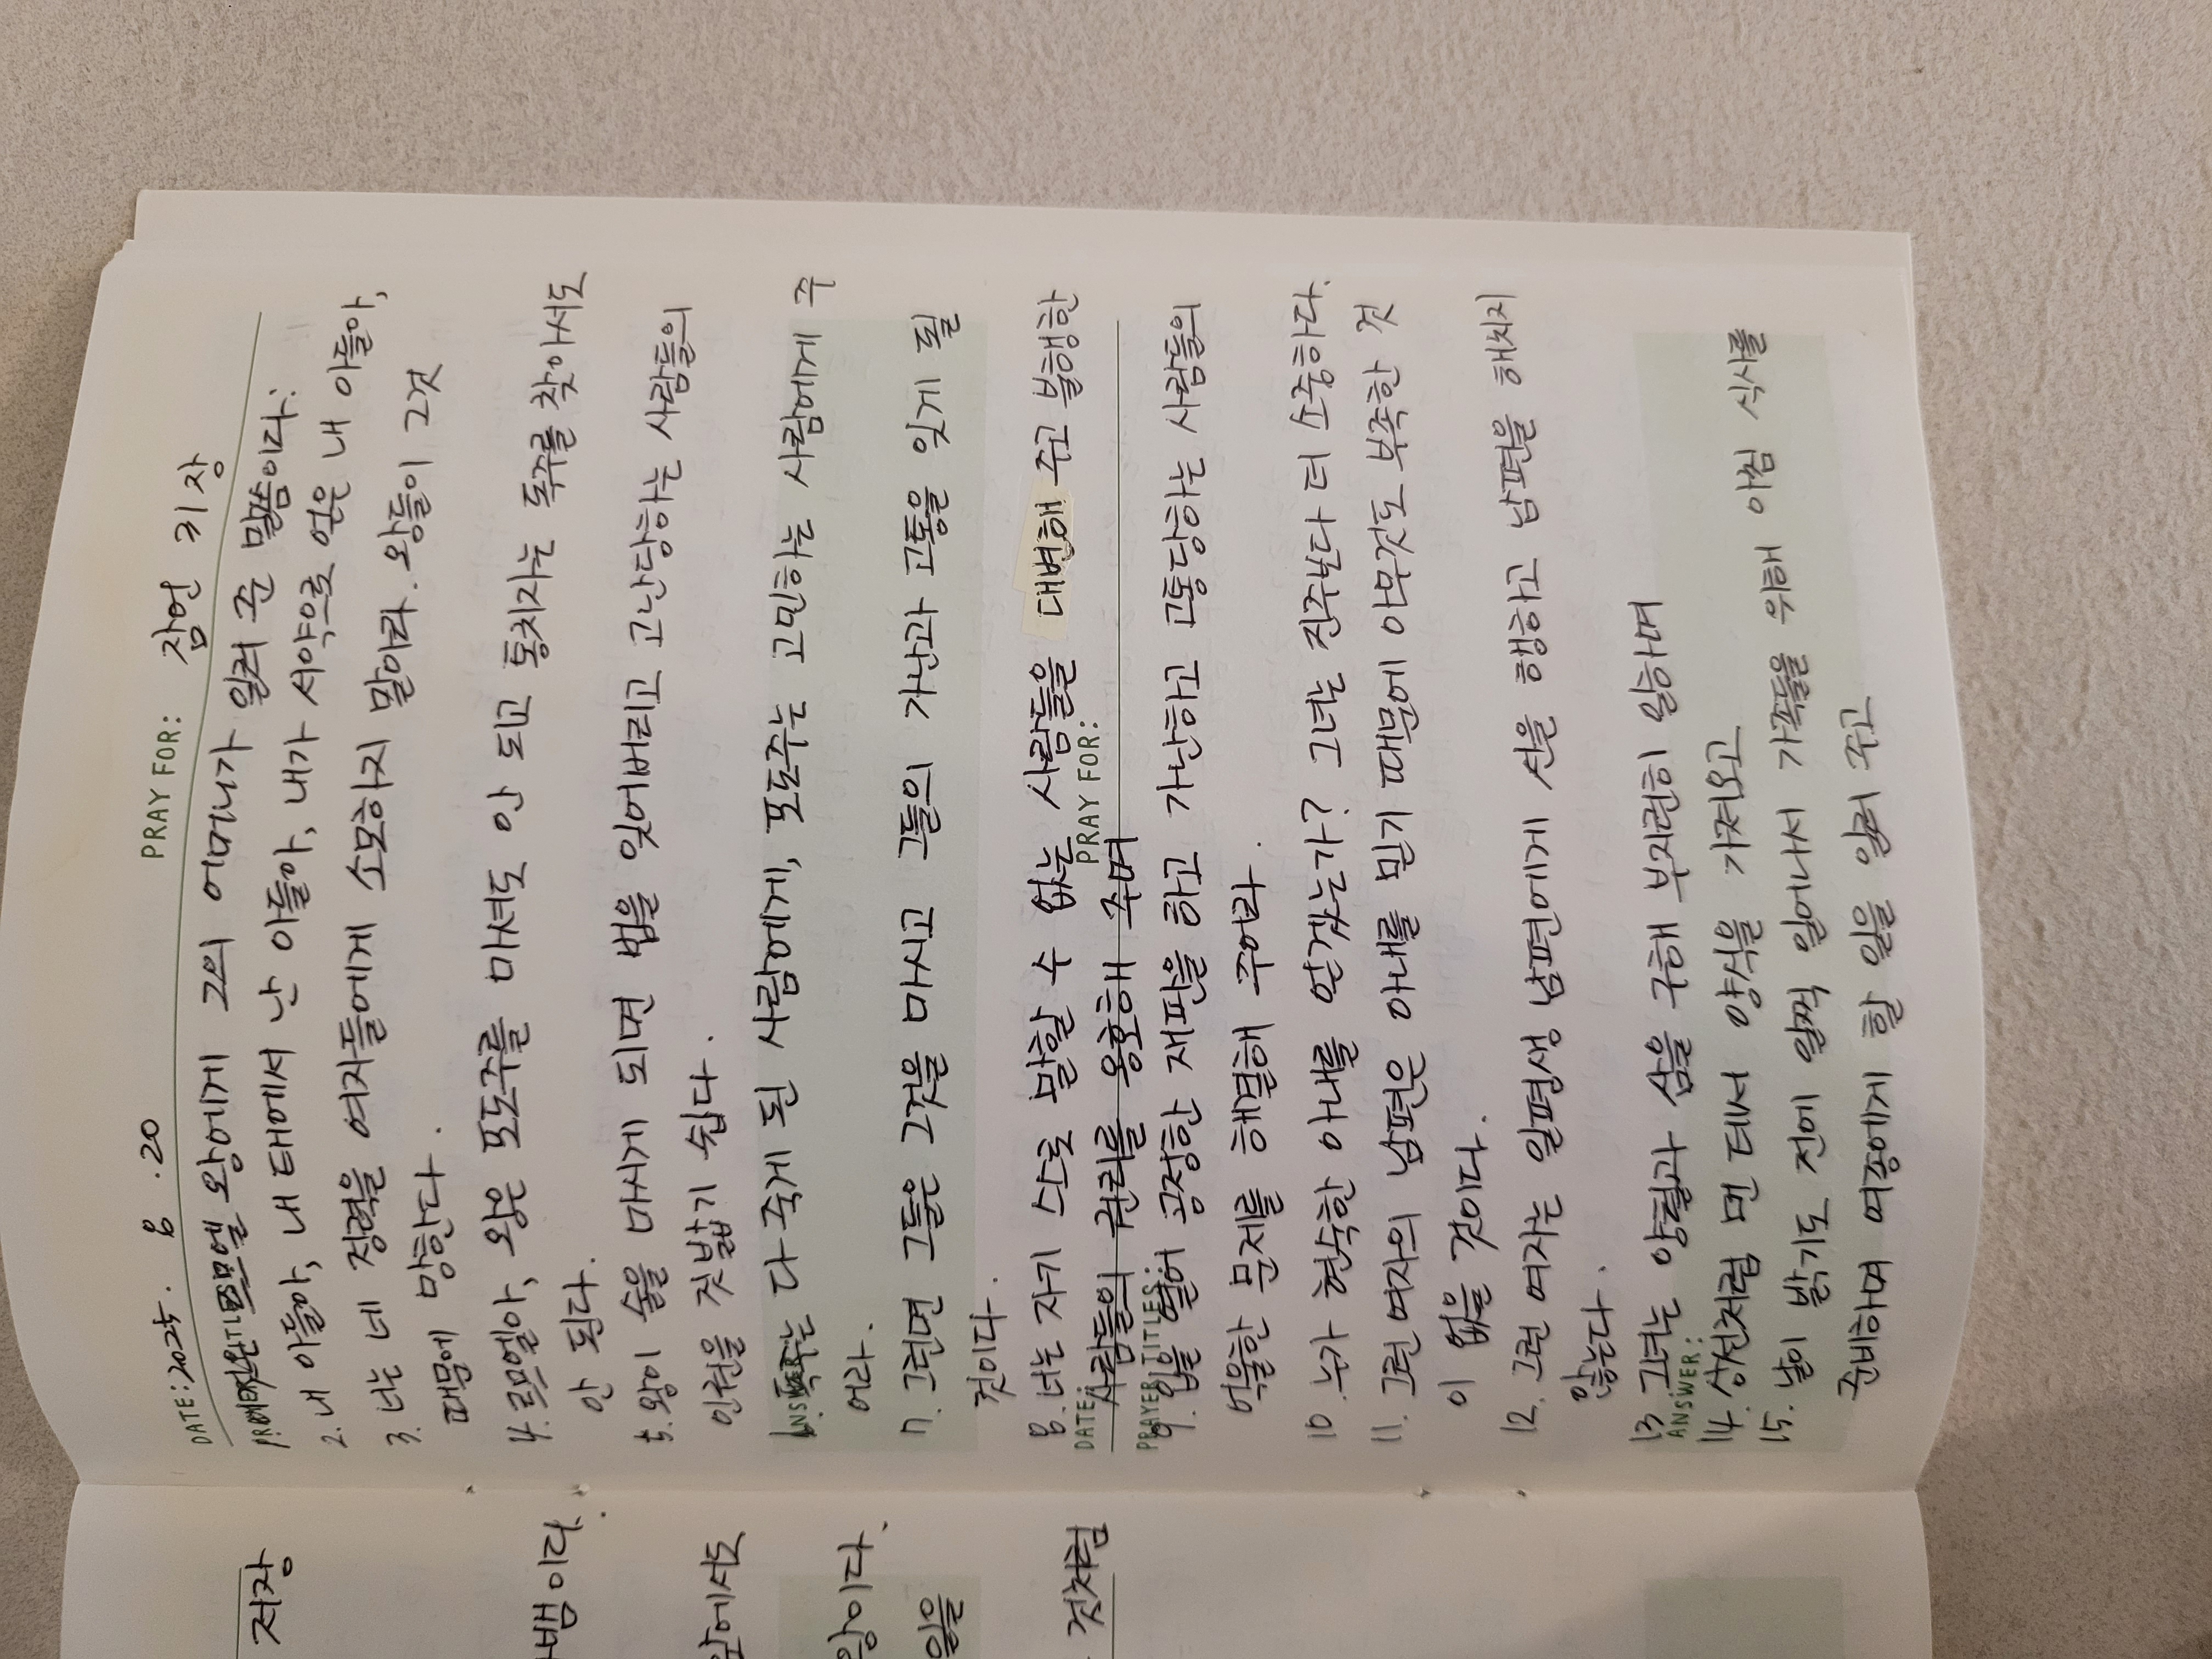 DATE: 2025. 8. 20 PRAY FOR: 잠언 31장
PRAYER TITLES:
1. 르므엘 왕에게 그의 어머니가 일러 준 말씀이다:
2. 내 아들아, 내 태에서 난 아들아, 내가 서약으로 얻은 내 아들아,
3. 너는 네 정력을 여자들에게 소모하지 말아라. 왕들이 그것
때문에 망한다.
4. 르므엘아, 왕은 포도주를 마셔도 안 되고 통치자는 독주를 찾아서도
안 된다.
5. 왕이 술을 마시게 되면 법을 잊어버리고 고난당하는 사람들의
인권을 짓밟기 쉽다.
ANSWER:
6. 독주는 다 죽게 된 사람에게, 포도주는 고민하는 사람에게 주
어라.
7. 그러면 그들은 그것을 마시고 그들의 가난과 고통을 잊게 될
것이다.
8. 너는 자기 스스로 말할 수 없는 사람들을 대변해 주고 불행한
DATE: PRAY FOR:
사람들의 권리를 옹호해 주며
PRAYER TITLES:
9. 입을 열어 공정한 재판을 하고 가난하고 고통당하는 사람들의
억울한 문제를 해결해 주어라.
10. 누가 현숙한 아내를 얻겠는가? 그녀는 진주보다 더 소중하다.
11. 그런 여자의 남편은 아내를 믿기 때문에 아무것도 부족한 것
이 없을 것이다.
12. 그런 여자는 일평생 남편에게 선을 행하고 남편을 해치지
않는다.
13. 그녀는 양털과 삼을 구해 부지런히 일하며
ANSWER:
14. 상선처럼 먼 데서 양식을 가져오고
15. 날이 밝기도 전에 일찍 일어나서 가족들을 위해 아침 식사를
준비하며 여종에게 할 일을 일러 주고
뱀이다.
앞에서도
왕이다.
것처럼